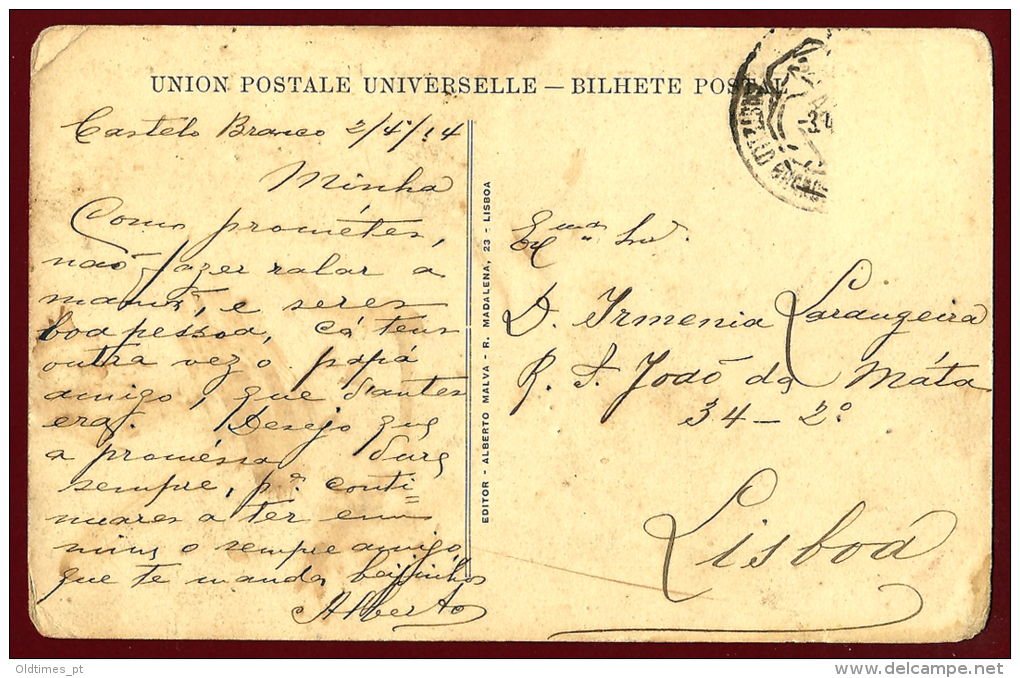 UNION POSTALE UNIVERSELLE — BILHETE POSTAL
Castelo Branco 2/4/14
Minha
Como prométes,
não fazer ralar a
mamã, e seres
boa pessoa, cá tens
outra vez o papá
amigo, que d'antes
era. Desejo que
a proméssa dure
sempre, pª. conti=
nuares a ter em
mim o sempre amigo,
que te manda beijinhos
Alberto
EDITOR - ALBERTO MALVA - R. MADALENA, 23 - LISBOA
Exma Sra.
D. Irmenia Larangeira
R. S. João da Máta
34 - 2º
Lisboa
Oldtimes_pt
http://www.delcampe.net